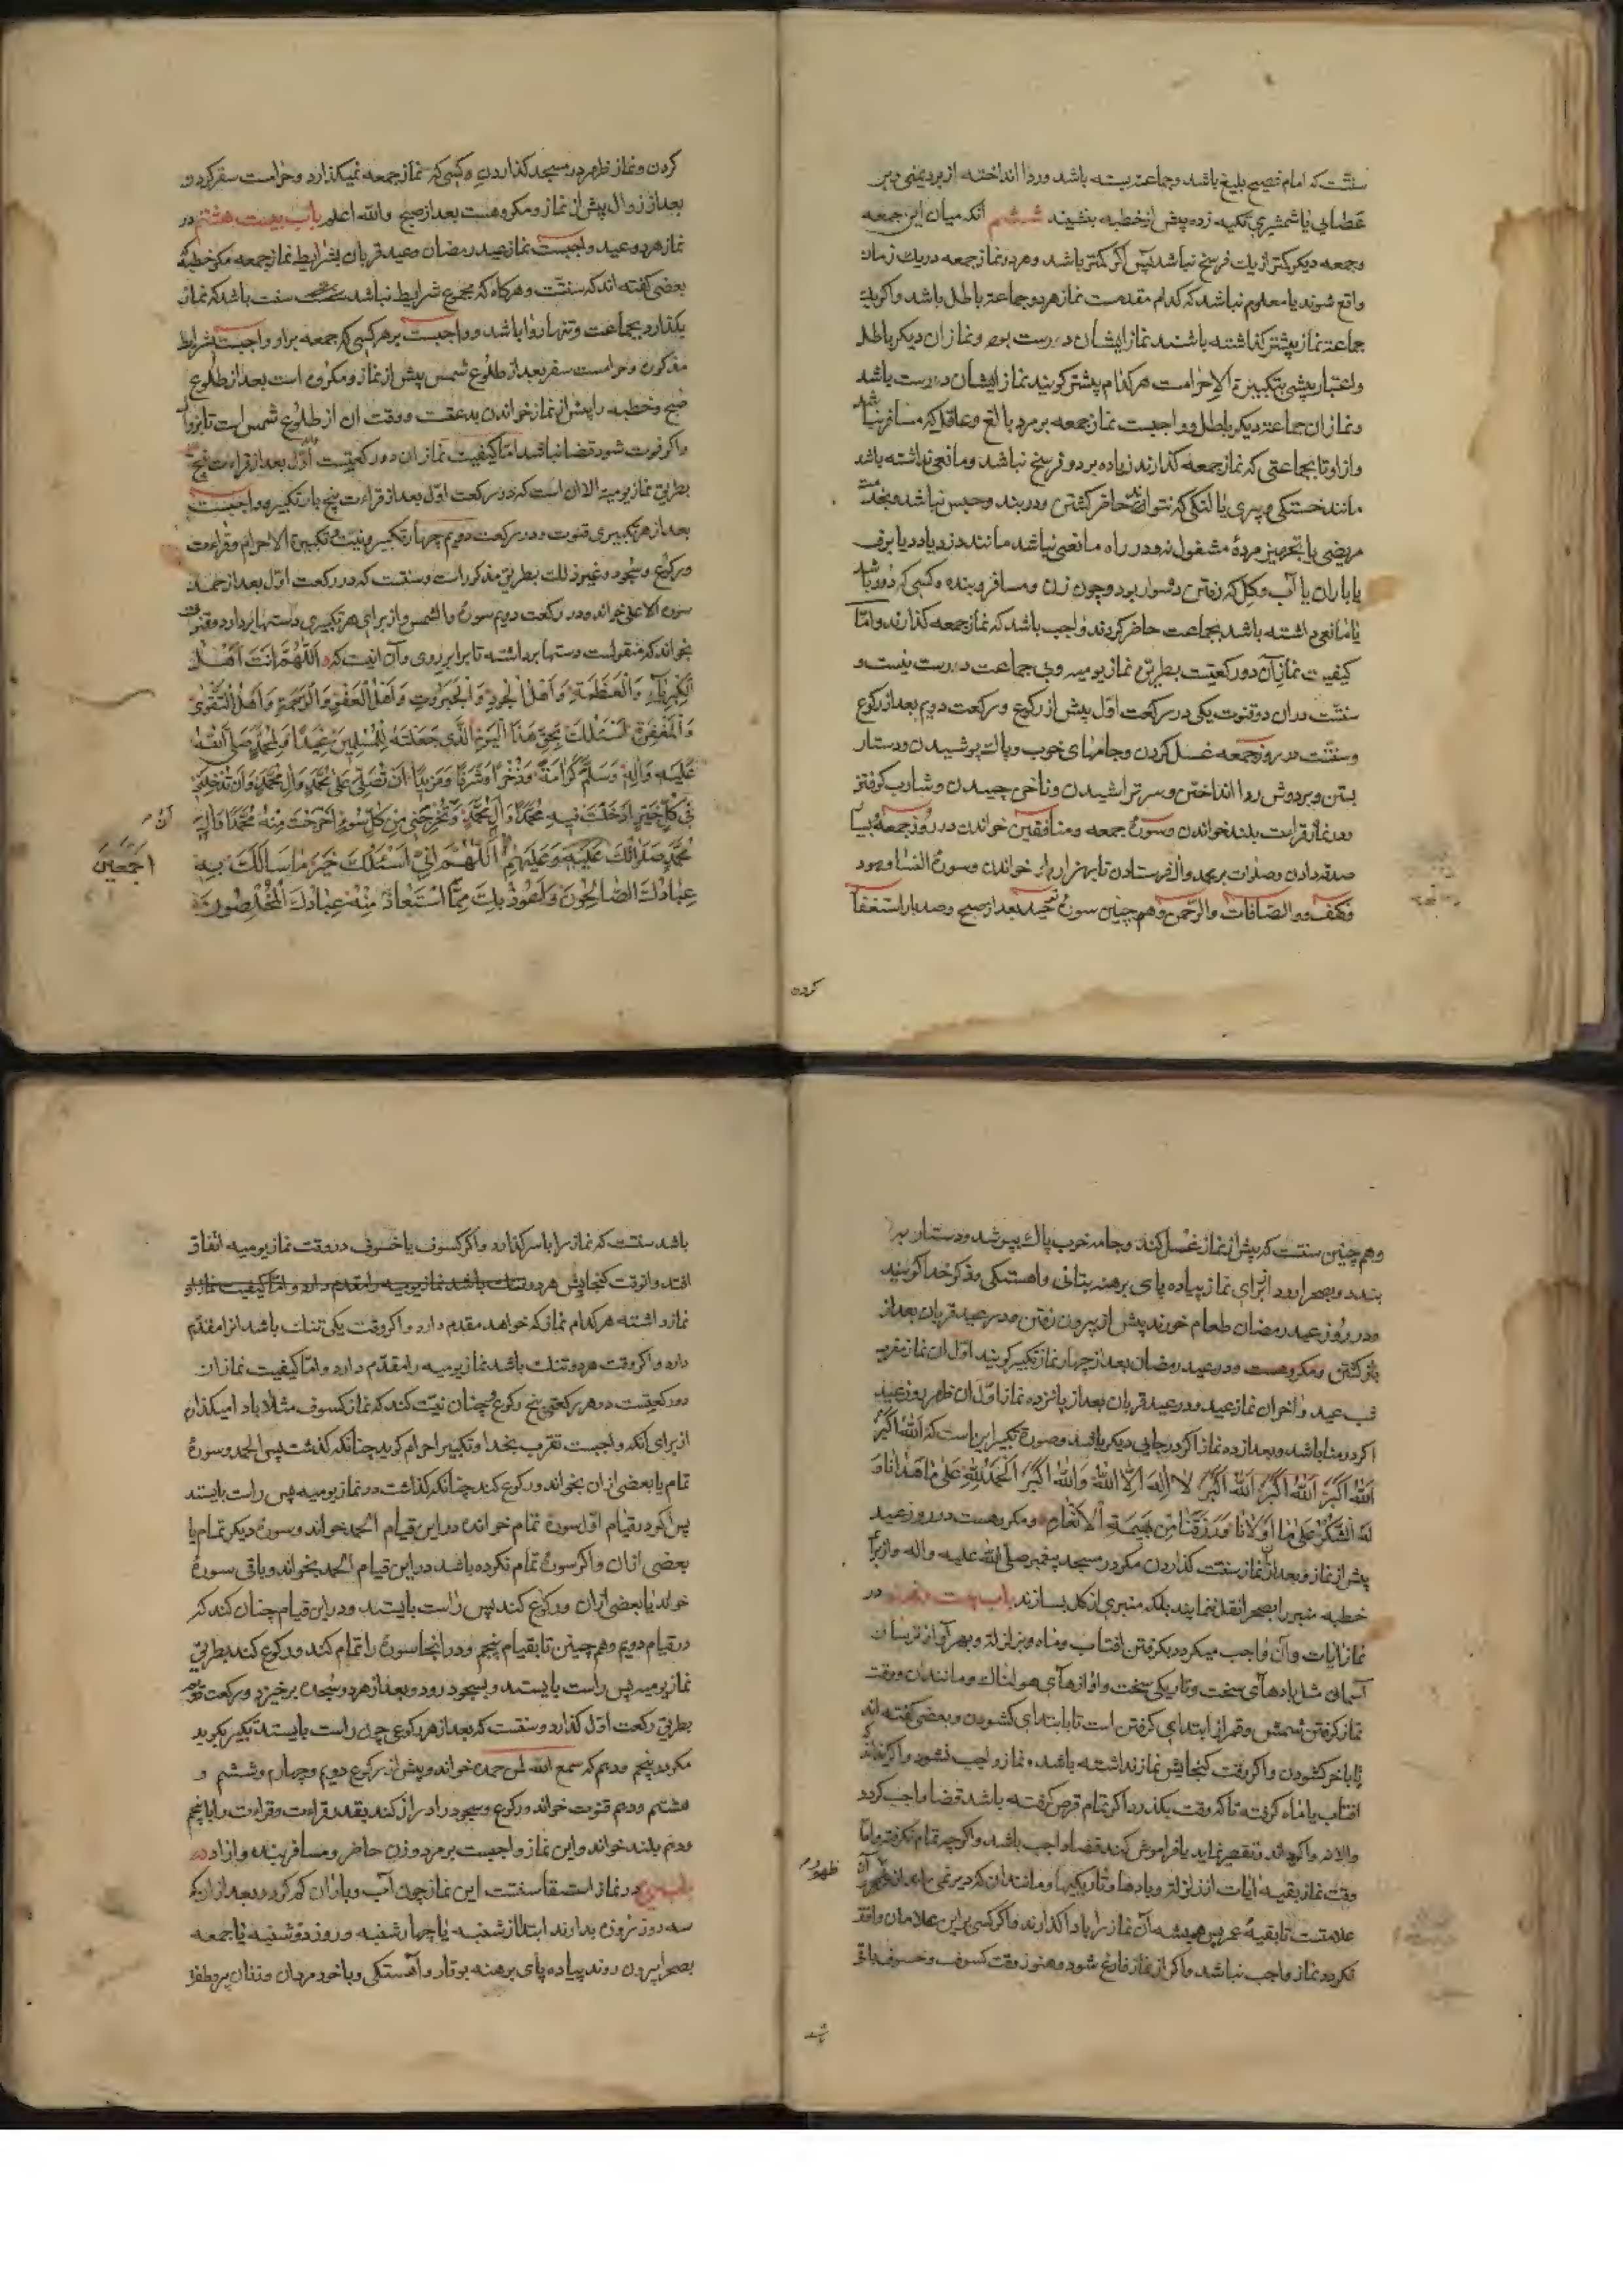 سنتست که امام فصیح بلیغ باشد و جماعه بسته باشد و ردا انداخته از برد یمنی و بر
عصایی یا شمشیری تکیه زده پیش از خطبه بنشیند ششم آنکه میان این جمعه
و جمعه دیکر کمتر از یک فرسخ نباشد پس اکر کمتر باشد و هر دو نماز جمعه در یک زمان
واقع شوند یا معلوم نباشد که کدام مقدمست نماز هر دو جماعة باطل باشد و اکر یک
جماعة نماز پیشتر کذاشته باشند نماز ایشان درست بود و نماز ان دیکر باطل
و اعتبار پیشی بتکبیرة الاحرامست هر کدام پیشتر کویند نماز ایشان درست باشد
و نماز ان جماعة دیکر باطل و واجبست نماز جمعه بر مرد بالغ و عاقل که مسافر نباشد
و از او تا بجماعتی که نماز جمعه کذارند زیاده بر دو فرسخ نباشد و مانعی نداشته باشد
مانند خستکی و پیری یا لنکی که نتواند حاضر کشتن و در بند و حبس نباشد و بخدمت
مریضی یا بتجهیز مردهٔ مشغول نبود و در راه مانعی نباشد مانند دزد یا دد یا برف
یا باران یا آب و کل که رفتن دشوار بود و چون زن و مسافر و بنده و کسی که دور باشد
یا مانعی داشته باشد بجماعت حاضر کردند واجب باشد که نماز جمعه کذارند و اما
کیفیت نماز آن دو رکعتست بطریق نماز یومیه و بی جماعت درست نیست و
سنتست در ان دو قنوت یکی در رکعت اول پیش از رکوع و رکعت دویم بعد از رکوع
و سنتست در روز جمعه غسل کردن و جامهای خوب و پاک پوشیدن و دستار
بستن و بر دوش ردا انداختن و سر تراشیدن و ناخن چیدن و شارب کوفتن
و در نماز قراءت بلند خواندن و سورهٔ جمعه و منافقین خواندن در روز جمعه بسیار
صدقه دادن و صلوات بر محمد و ال فرستادن تا بهزار بار خواندن و سورهٔ النسا و هود
و کهف و و الصافات و الرحمن و هم چنین سورهٔ توحید بعد از صبح و صد بار استغفار
کردن
کردن و نماز ظهر در مسجد کذاردن و کسی که نماز جمعه نمیکذارد و حرامست سفر کردن
بعد از زوال پیش از نماز و مکروهست بعد از صبح و الله اعلم باب بیست هشتم در
نماز هر دو عید واجبست نماز عید رمضان و عید قربان بشرایط نماز جمعه مکر خطبه که
بعضی کفته اند که سنتست و هرکاه که مجموع شرایط نباشد سنت باشد که نماز
بکذارد بجماعت و تنها روا باشد و واجبست بر هر کسی که جمعه بر او واجبست بشرایط
مذکوره و حرامست سفر بعد از طلوع شمس پیش از نماز و مکروه است بعد از طلوع
صبح و خطبه را پیش از نماز خواندن بدعتست و وقت ان از طلوع شمس است تا بزوال
و اکر فوت شود قضا نباشد اما کیفیت نماز ان دو رکعتست اول بعد از قراءت پنج
بطریق نماز یومیه الا ان است که در رکعت اول بعد از قراءت پنج بار تکبیر و واجبست
بعد از هر تکبیری قنوت و در رکعت دویم چهار تکبیر و نیت و تکبیرة الاحرام و قراءت
و رکوع و سجود و غیر ذلک بطریق مذکوراست و سنتست که در رکعت اول بعد از حمد
سوره الاعلی خواند و در رکعت دویم سوره و الشمس و از برای هر تکبیری دستها بر دارد و قنوت
بخواند که منقولست دستها برداشته تا برابر روی و آن اینست که اَللّهُمَّ اَنْتَ اَهْلَ
الْکِبْرِیاءِ وَالْعَظَمَةِ وَاَهْلَ الْجُودِ وَالْجَبَرُوتِ وَاَهْلَ الْعَفْوِ وَالرَّحْمَةِ وَاَهْلَ التَّقْوٰی
وَالْمَغْفِرَةِ اَسْئَلُکَ بِحَقِّ هٰذَا الْیَوْمِ الَّذی جَعَلْتَهُ لِلْمُسْلِمینَ عیدًا وَلِمُحَمَّدٍ صَلَّی اللهُ
عَلَیْهِ وَاٰلِهِ وَسَلَّمَ کَرَامَةً وَذُخْرًا وَشَرَفًا وَمَزیدًا اَنْ تُصَلِّیَ عَلٰی مُحَمَّدٍ وَاٰلِ مُحَمَّدٍ وَاَنْ تُدْخِلَنی
فی کُلِّ خَیْرٍ اَدْخَلْتَ فیهِ مُحَمَّدًا وَاٰلَ مُحَمَّدٍ وَتُخْرِجَنی مِنْ کُلِّ سُوءٍ اَخْرَجْتَ مِنْهُ مُحَمَّدًا وَاٰلَ
مُحَمَّدٍ صَلَوَاتُکَ عَلَیْهِ وَعَلَیْهِمْ اَللّهُمَّ اِنّی اَسْئَلُکَ خَیْرَ مَا سَاَلَکَ بِهِ
اَجْمَعینَ
عِبَادُکَ الصَّالِحُونَ وَاَعُوذُ بِکَ مِمَّا اسْتَعَاذَ مِنْهُ عِبَادُکَ الْمُخْلَصُونَ
و هم چنین سنتست که پیش از نماز غسل کند و جامه خوب پاک بپوشد و دستار بر
بندد و بصحرا رود از برای نماز پیاده پای برهنه بتانی و اهستکی و ذکر خدا کویند
و در روز عید رمضان طعام خورند پیش از بیرون رفتن و در عید قربان بعد از
باز کشتن و مکروهست و در عید رمضان بعد از چهار نماز تکبیر کویند اول ان نماز مغرب
شب عید و آخر ان نماز عید و در عید قربان بعد از پانزده نماز اول ان ظهر روز عید
اکر در منا باشد و بعد از ده نماز اکر در جایی دیکر باشد و صورة تکبیر این است که اَللهُ اَکْبَرُ
اَللهُ اَکْبَرُ اَللهُ اَکْبَرُ اَللهُ اَکْبَرُ لا اِلٰهَ اِلَّا اللهُ وَاللهُ اَکْبَرُ اَلْحَمْدُ لِلّٰهِ عَلٰی مَا هَدٰانَا وَ
لَهُ الشُّکْرُ عَلٰی مَا اَوْلَانَا وَرَزَقَنَا مِنْ بَهیمَةِ الْاَنْعَامِ و مکروهست در روز عید
پیش از نماز و بعد از ان نماز سنت کذاردن مکر در مسجد پیغمبر صلی الله علیه و اله و از برای
خطبه منبر را بصحرا نقل ننمایند بلکه منبری از کل بسازند باب بیست و نهم در
نماز ایات و آن واجب میکردد بکرفتن افتاب و ماه و بزلزله و بهر آواز ترسان
آسمانی مثل بادهای سخت و تاریکی سخت و اوازهای هولناک و مانند ان و وقت
نماز کرفتن شمس و قمر از ابتدای کرفتن است تا بابتدای کشودن و بعضی کفته اند
تا باخر کشودن و اکر وقت کنجایش نماز نداشته باشد نماز واجب نشود و اکر نداند که
افتاب یا ماه کرفته تا که وقت بکذرد اکر تمام قرص کرفته باشد قضا واجب کردد
و الا نه و اکر داند و تقصیر نماید یا فراموش کند قضا واجب باشد و اکرچه تمام نکرفته و اما
وقت نماز بقیه ایات از زلزله و بادها و تاریکیها و مانند ان که دیر نمی ماند از ظهور آن
علامتست تا بقیهٔ عمر پس همیشه آن نماز را بادا کذارند و اکر کسی بر این علامات واقف
نکردد نماز واجب نباشد و اکر از نماز فارغ شود و هنوز وقت کسوف و خسوف باقی
باشد
باشد سنتست که نماز را باسر کذارد و اکر کسوف یا خسوف در وقت نماز یومیه اتفاق
افتد و از وقت کنجایش هر دو
نماز داشته هر کدام نماز که خواهد مقدم دارد و اکر وقت یکی تنک باشد انرا مقدم
دارد و اکر وقت هر دو تنک باشد نماز یومیه را مقدم دارد و اما کیفیت نماز ان
دو رکعتست در هر رکعتی پنج رکوع چنان نیت کند که نماز کسوف مثلا بادا میکذارم
از برای آنکه واجبست تقرب بخدا و تکبیر احرام کوید چنانکه کذشت پس الحمد و سورهٔ
تمام یا بعضی از ان بخواند و رکوع کند چنانکه کذاشت در نماز یومیه پس راست بایستد
پس اکر در قیام اول سوره تمام خوانده در این قیام الحمد خواند و سوره دیکر تمام یا
بعضی از ان و اکر سورهٔ تمام نکرده باشد در این قیام الحمد نخواند و باقی سورهٔ
خواند یا بعضی از ان و رکوع کند پس راست بایستد و در این قیام چنان کند که
در قیام دویم و هم چنین تا بقیام پنجم و در انجا سوره را تمام کند و رکوع کند بطریق
نماز یومیه پس راست بایستد و بسجود رود و بعد از هر دو سجده برخیزد و رکعت دویم
بطریق رکعت اول کذارد و سنتست که بعد از هر رکوعی چون راست بایستد تکبیر بکوید
مکر در پنجم و دهم که سمع الله لمن حمده خواند و پیش از رکوع دویم و چهارم و ششم و
هشتم و دهم قنوت خواند و رکوع و سجود را دراز کند بقدر قراءت و قراءت را با پنجم
و دهم بلند خواند و این نماز واجبست بر مرد و زن حاضر و مسافر بنده و ازاد
باب سی در نماز استسقا سنتست این نماز چون آب و باران کم کردد بعد از ان که
سه روز روزه بدارند ابتدا از شنبه یا چهارشنبه و روز دوشنبه یا جمعه
بصحرا بیرون روند پیاده پای برهنه بوقار و آهستکی و با خود مردان و زنان پیر و طفل